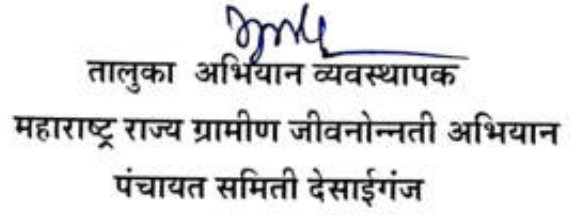 तालुका अभियान व्यवस्थापक
महाराष्ट्र राज्य ग्रामीण जीवनोन्नती अभियान
पंचायत समिती देसाईगंज